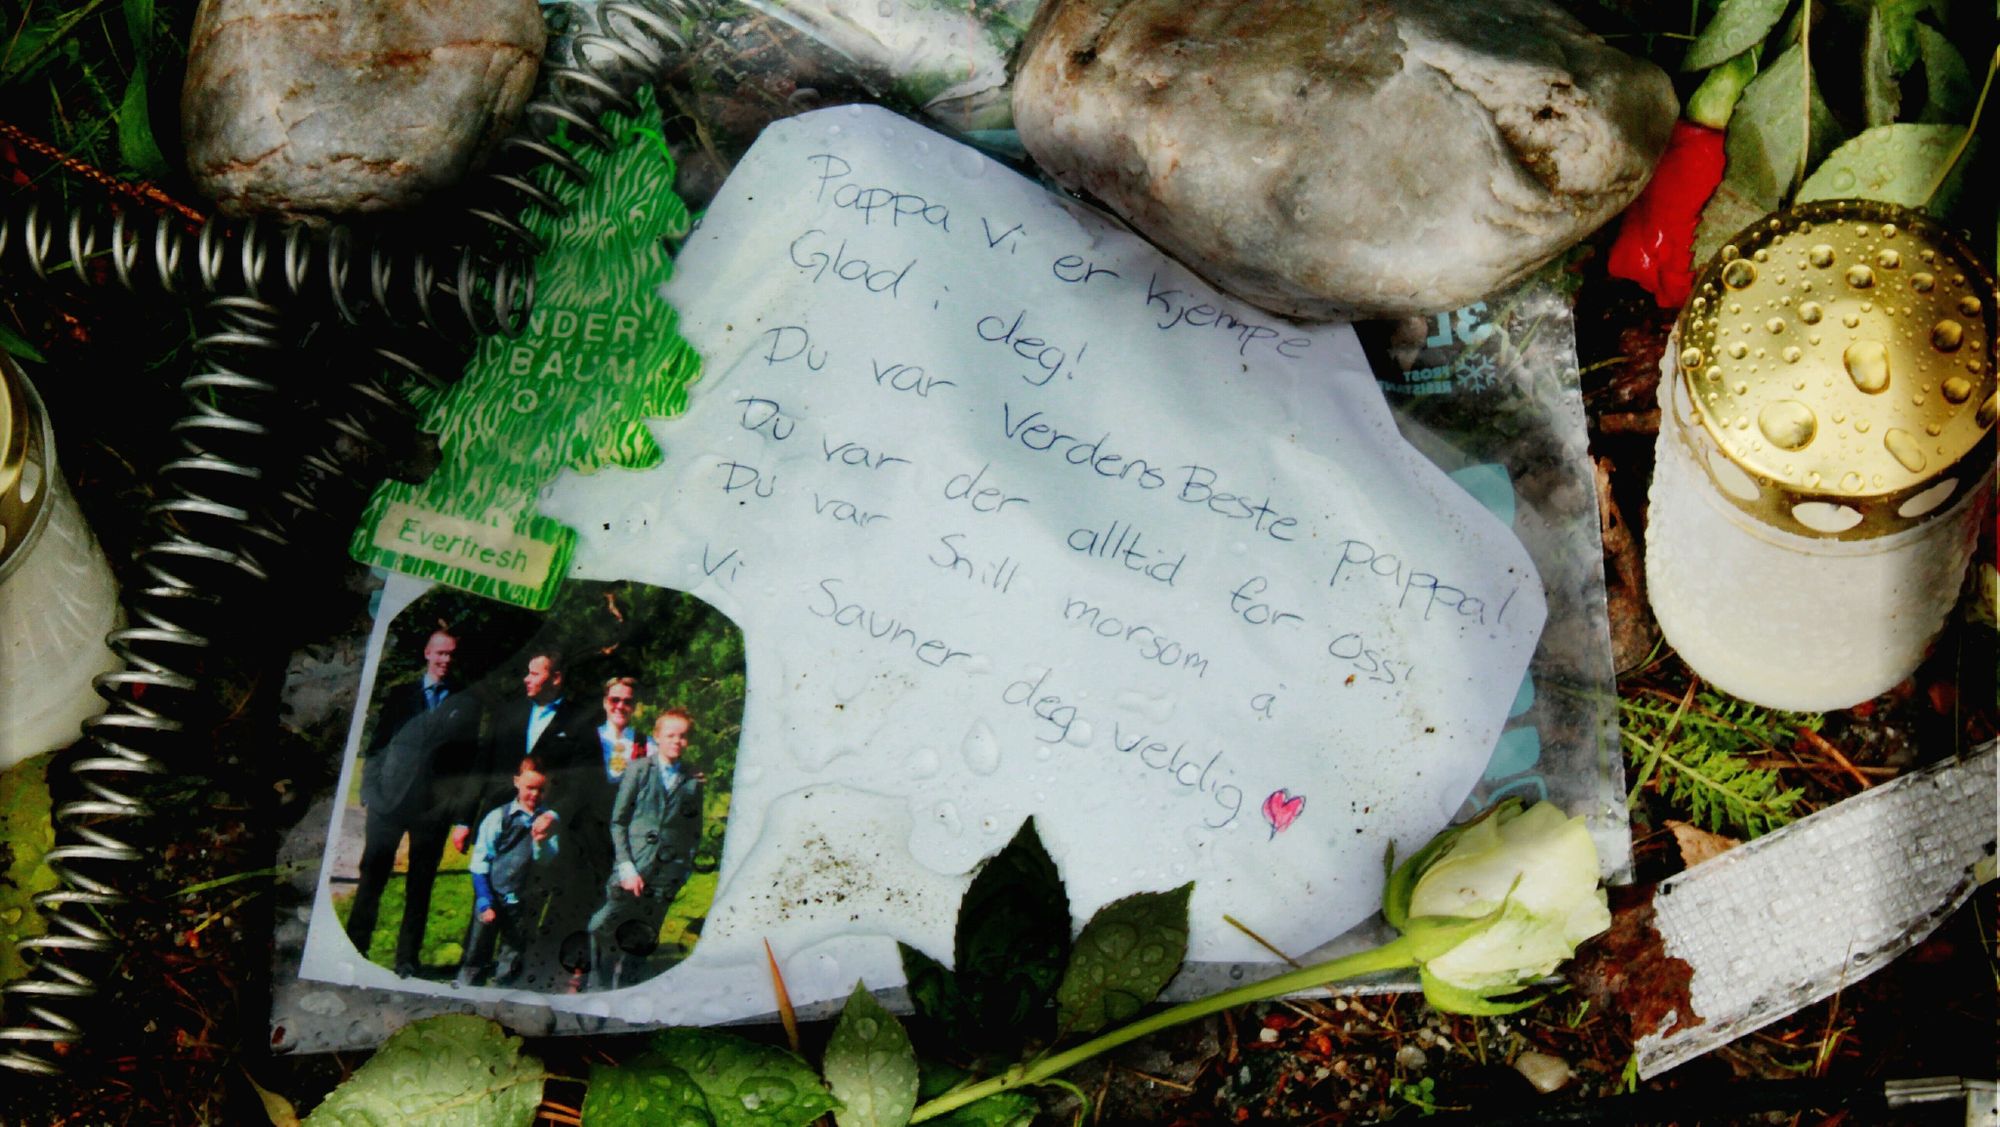 Pappa vi er kjempe
Glad i deg!
Du var verdens Beste pappa!
Du var der alltid for oss!
Du var Snill morsom å
Vi Savner deg veldig
NDER-
BAUM
Everfresh
3L
FROST
RESISTANT